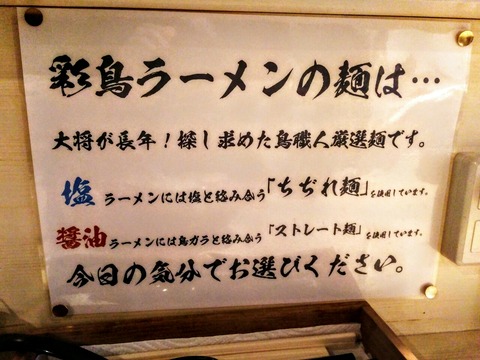 彩鳥ラーメンの麺は…
大将が長年！探し求めた鳥職人厳選麺です。
塩ラーメンには塩と絡み合う「ちぢれ麺」を使用しています。
醤油ラーメンには鳥ガラと絡み合う「ストレート麺」を使用しています。
今日の気分でお選びください。